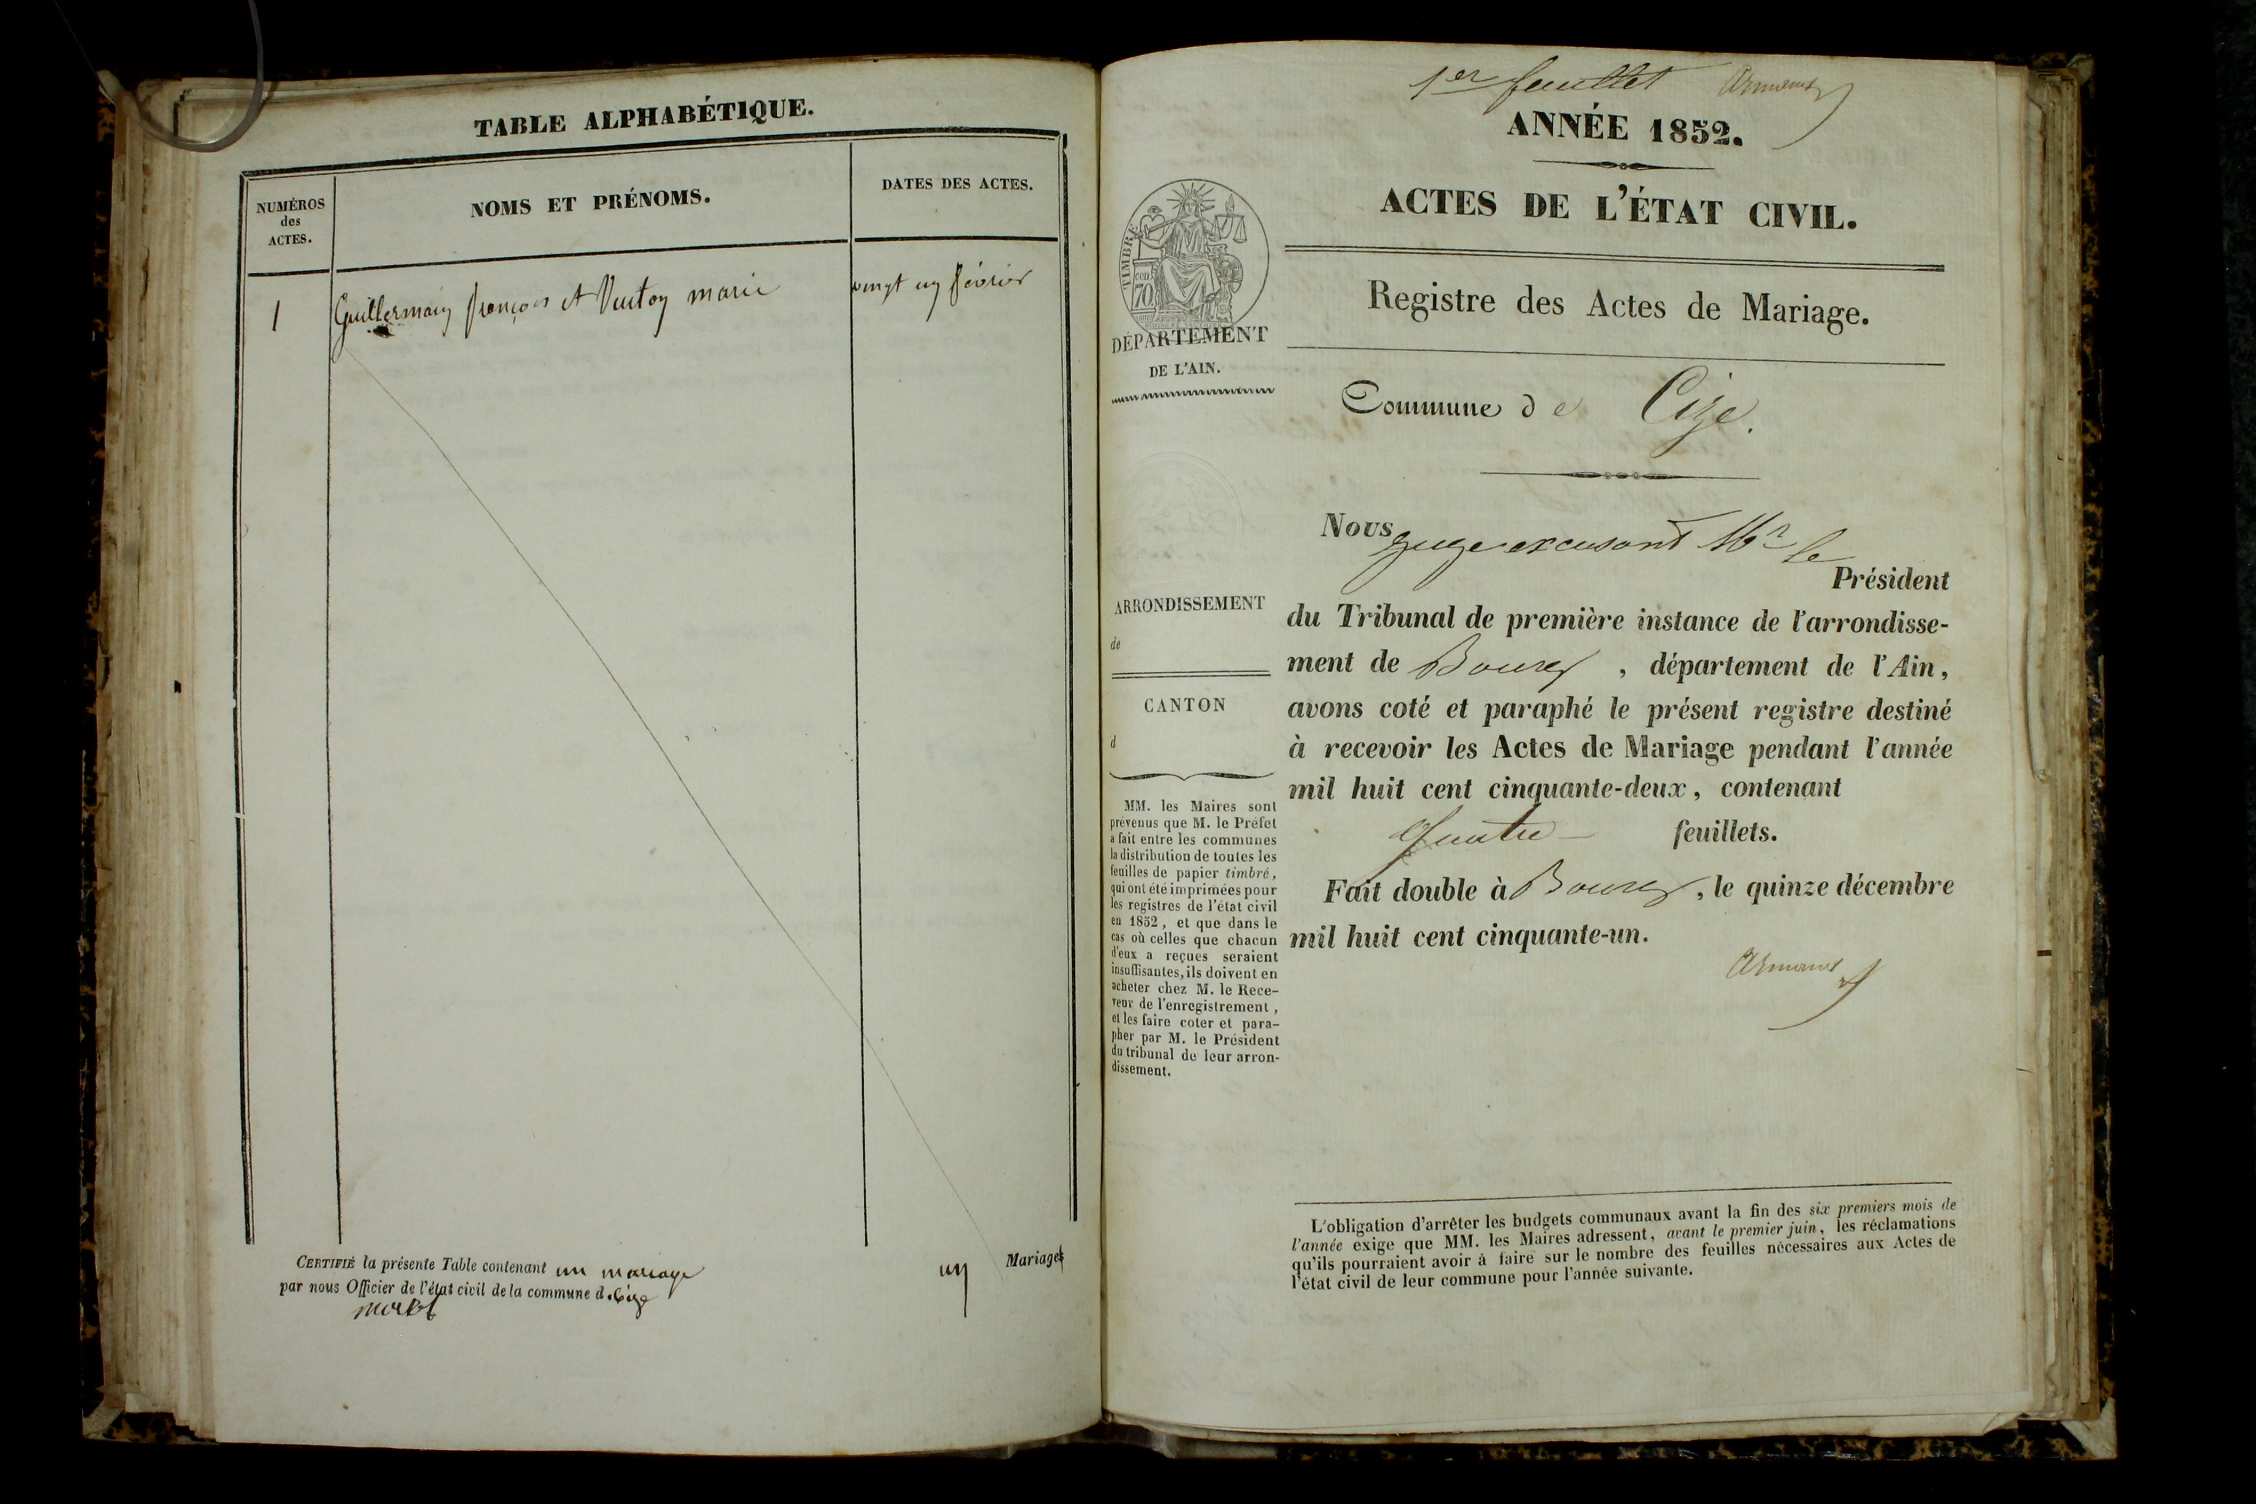 TABLE ALPHABÉTIQUE.
NUMÉROS
des
ACTES.
NOMS ET PRÉNOMS.
DATES DES ACTES.
1
Guillermain françois et marie
vingt un février
CERTIFIÉ la présente Table contenant un mariage
par nous Officier de l'état civil de la commune d. Cize
un Mariages
1er feuillet Armand
ANNÉE 1852.
ACTES DE L'ÉTAT CIVIL.
Registre des Actes de Mariage.
TIMBRE
70
DÉPARTEMENT
DE L'AIN.
Commune de Cize.
Nous juge excusant Mr le
Président
du Tribunal de première instance de l'arrondisse-
ment de Bourg, département de l'Ain,
avons coté et paraphé le présent registre destiné
à recevoir les Actes de Mariage pendant l'année
mil huit cent cinquante-deux, contenant
quatre feuillets.
Fait double à Bourg, le quinze décembre
mil huit cent cinquante-un.
Armand
ARRONDISSEMENT
de
CANTON
d
MM. les Maires sont
prévenus que M. le Préfet
a fait entre les communes
la distribution de toutes les
feuilles de papier timbré,
qui ont été imprimées pour
les registres de l'état civil
en 1852, et que dans le
cas où celles que chacun
d'eux a reçues seraient
insuffisantes, ils doivent en
acheter chez M. le Rece-
veur de l'enregistrement,
et les faire coter et para-
pher par M. le Président
du tribunal de leur arron-
dissement.
L'obligation d'arrêter les budgets communaux avant la fin des six premiers mois de
l'année exige que MM. les Maires adressent, avant le premier juin, les réclamations
qu'ils pourraient avoir à faire sur le nombre des feuilles nécessaires aux Actes de
l'état civil de leur commune pour l'année suivante.